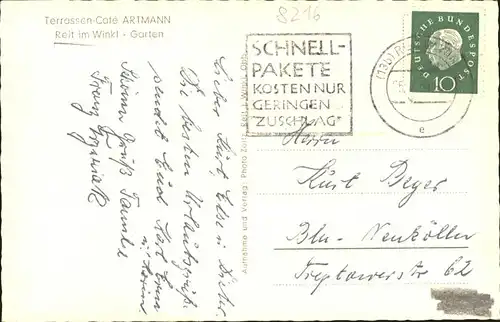 Terrassen-Café ARTMANN
Reit im Winkl - Garten
8216
Lieber Kurt, Else u.
Die besten Urlaubsgrüße
sendet Euch Karl Erna
u. Karin
Grüß Familie
Franz
Aufnahme und Verlag: Photo
Reit i. Winkl, Obb.
SCHNELL-
PAKETE
KOSTEN NUR
GERINGEN
"ZUSCHLAG"
(13b)
e
DEUTSCHE BUNDESPOST
10
Herrn
Kurt Beyer
Bln-Neukölln
Treptowerstr 62